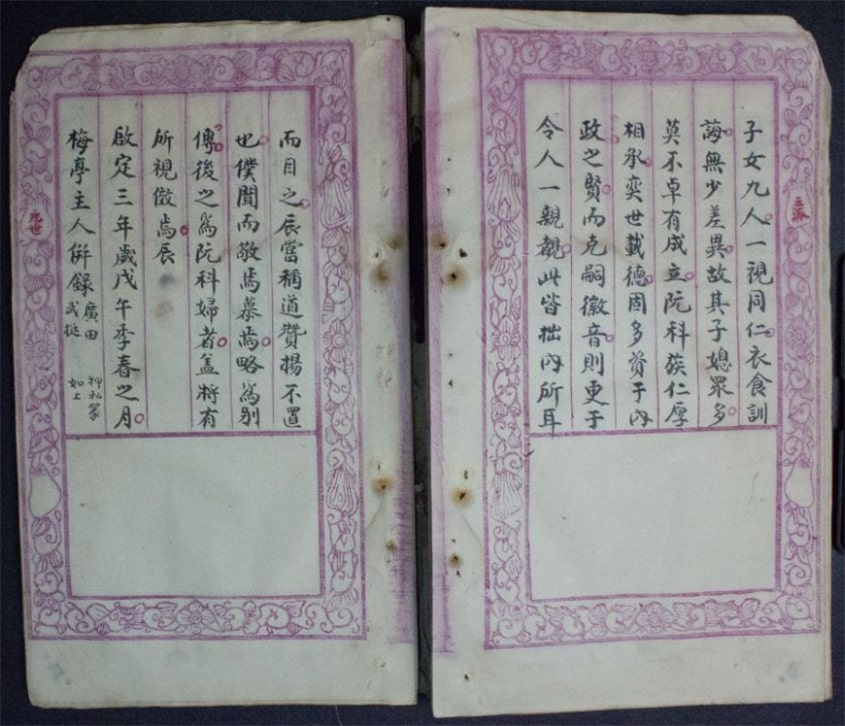 子女九人一視同仁衣食訓
誨無少差異故其子媳眾多
莫不卓有成立阮科族仁厚
相承奕世載德固多資于內
政之賢而克嗣徽音則更于
令人一親覩此皆拙內所耳
而目之辰當稱道贊揚不置
也僕聞而敬焉慕焉略為別
傳後之為阮科婦者盖將有
所視傚焉辰
啟定三年歲戊午季春之月
梅亭主人併錄
廣田
武挺
押私篆
如上
九世